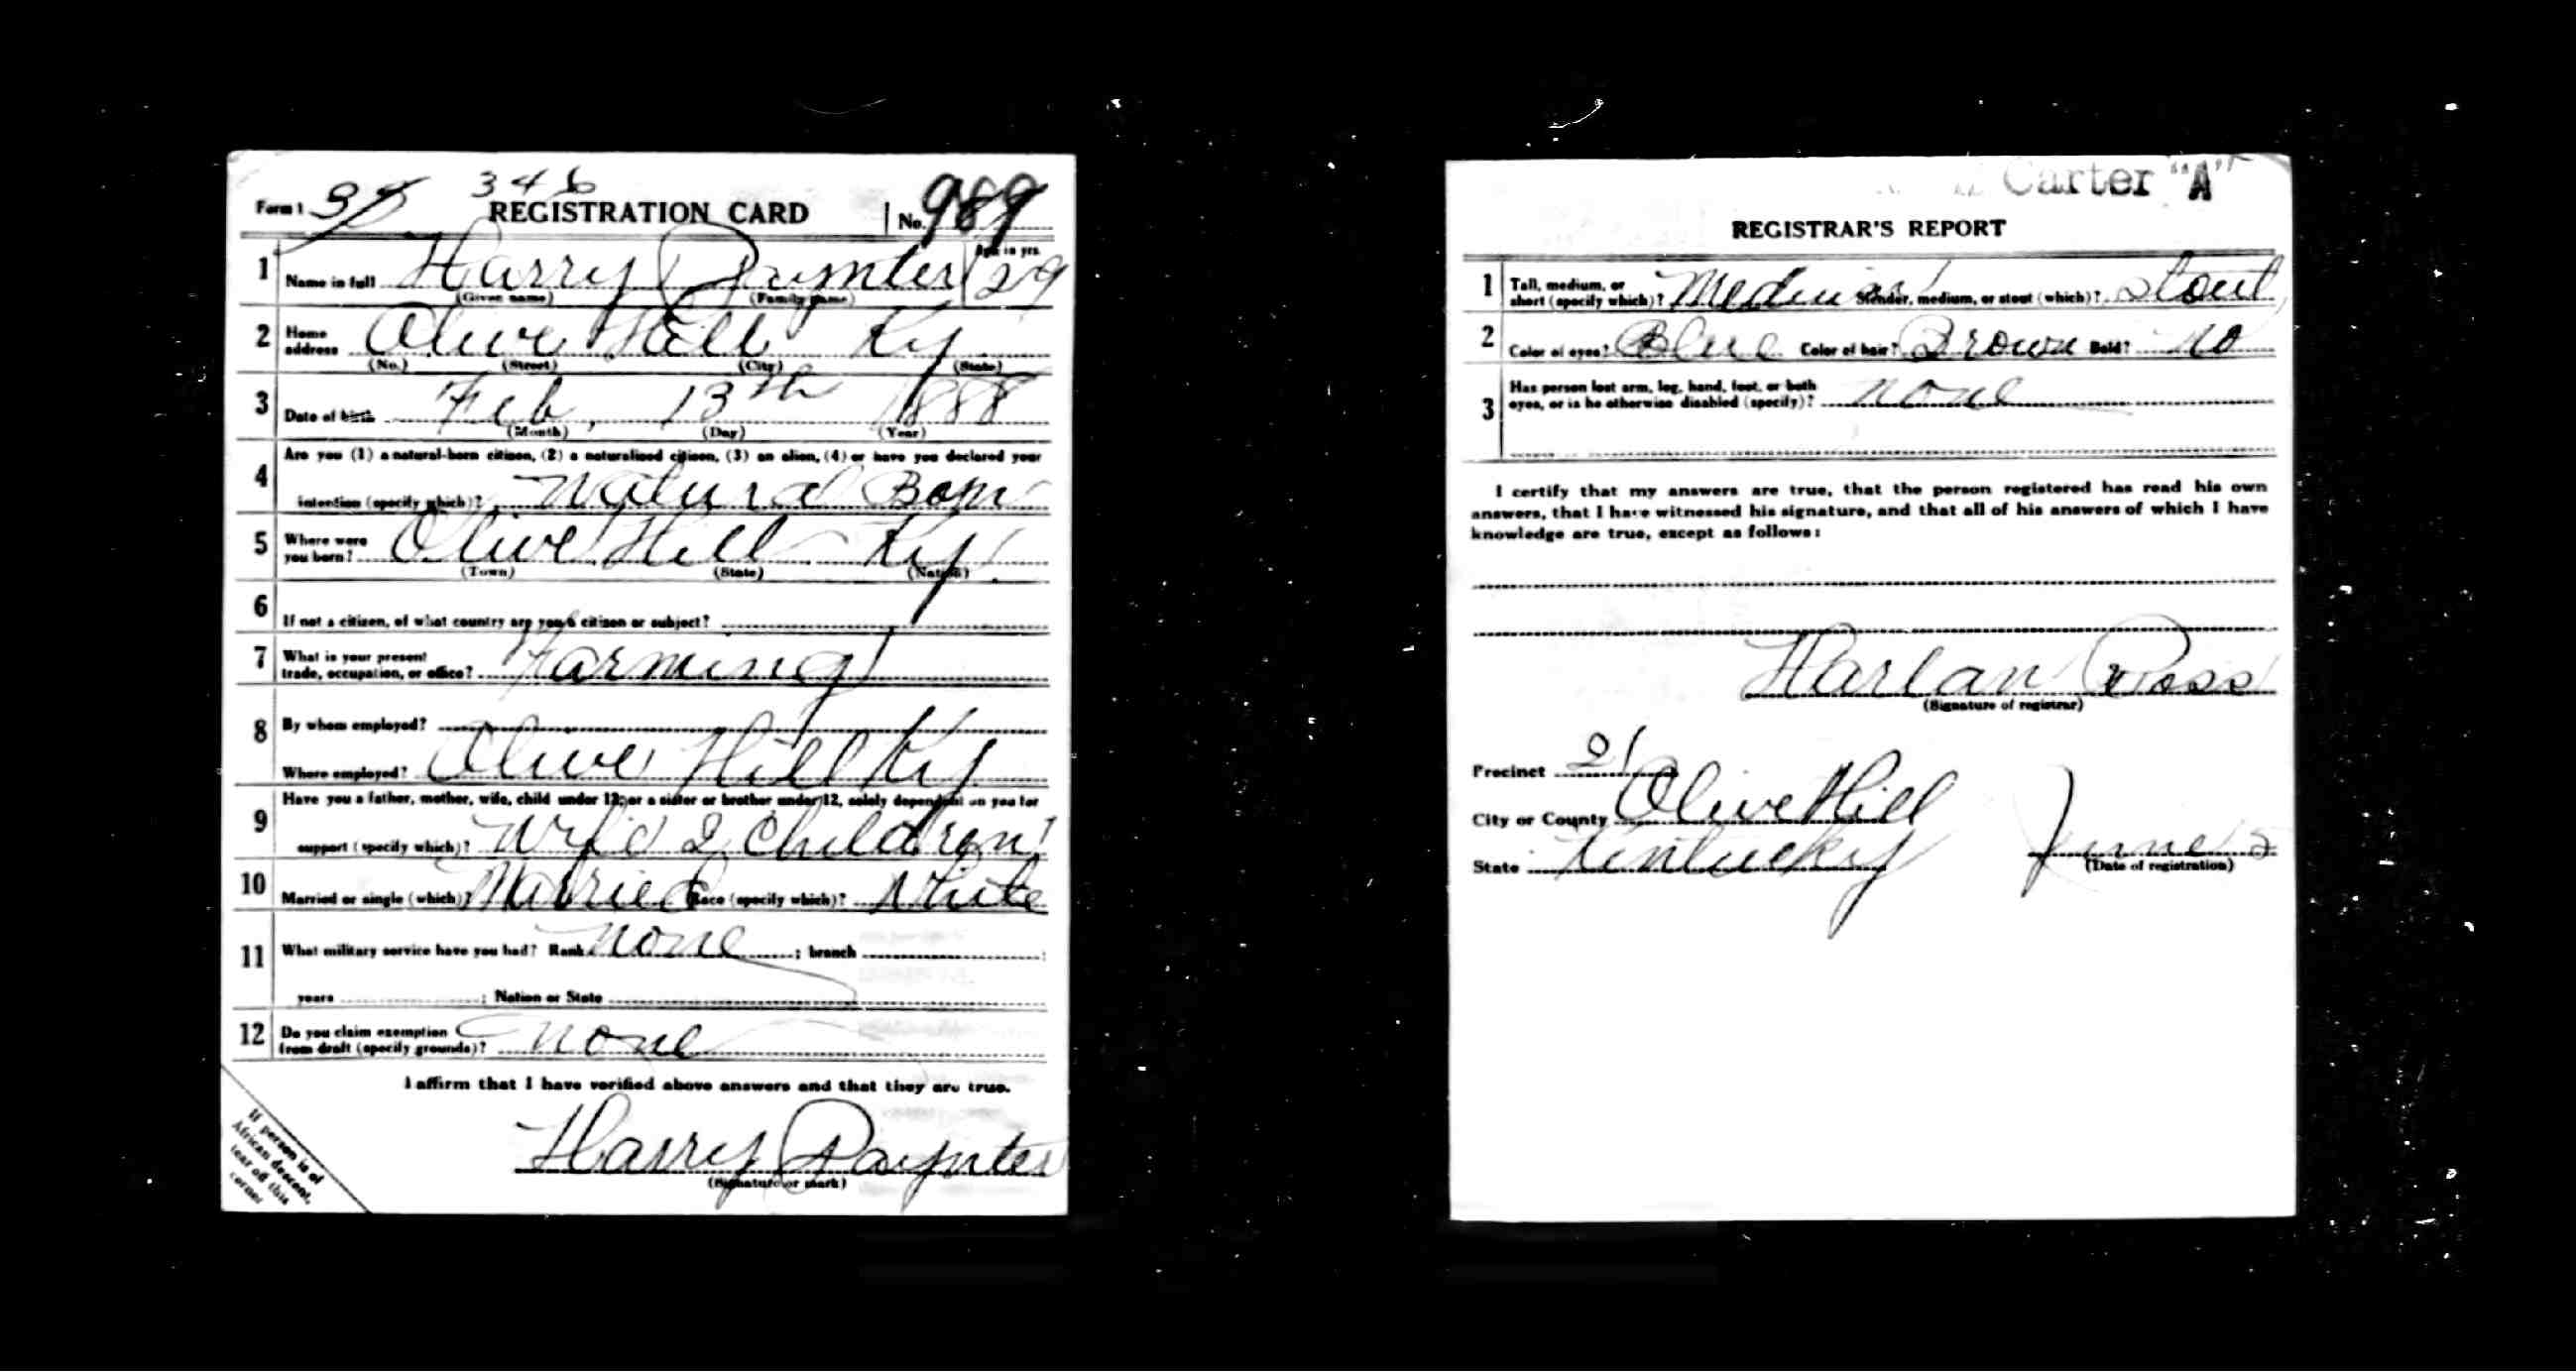 346
Form 1 37 REGISTRATION CARD No. 989
1 Name in full Harry Paynter Age in yrs. 29
(Given name) (Family name)
2 Home address Olive Hill Ky.
(No.) (Street) (City) (State)
3 Date of birth Feb, 13th 1888
(Month) (Day) (Year)
Are you (1) a natural-born citizen, (2) a naturalized citizen, (3) an alien, (4) or have you declared your
4 intention (specify which)? Natural Born
5 Where were you born? Olive Hill Ky.
(Town) (State) (Nation)
6 If not a citizen, of what country are you a citizen or subject?
7 What is your present
trade, occupation, or office? Farming
8 By whom employed?
Where employed? Olive Hill Ky.
Have you a father, mother, wife, child under 12, or a sister or brother under 12, solely dependent on you for
9 support (specify which)? Wife 2 Children
10 Married or single (which)? Married Race (specify which)? White
11 What military service have you had? Rank None ; branch
years ; Nation or State
12 Do you claim exemption
from draft (specify grounds)? None
I affirm that I have verified above answers and that they are true.
Harry Paynter
(Signature or mark)
If person is of
African descent,
tear off this
corner
Carter "A"
REGISTRAR'S REPORT
1 Tall, medium, or
short (specify which)? Medium Slender, medium, or stout (which)? Stout
2 Color of eyes? Blue Color of hair? Brown Bald? No
Has person lost arm, leg, hand, foot, or both
3 eyes, or is he otherwise disabled (specify)? None
I certify that my answers are true, that the person registered has read his own
answers, that I have witnessed his signature, and that all of his answers of which I have
knowledge are true, except as follows:
Harlan Ross
(Signature of registrar)
Precinct 21
City or County Olive Hill
State Kentucky June 5
(Date of registration)